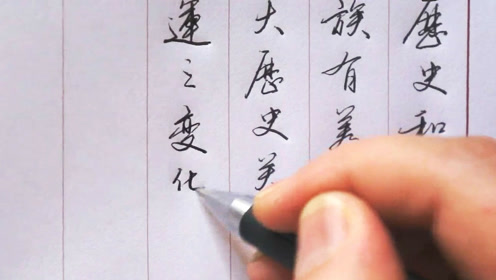 歷史和
族有着
大歷史关
運之变化